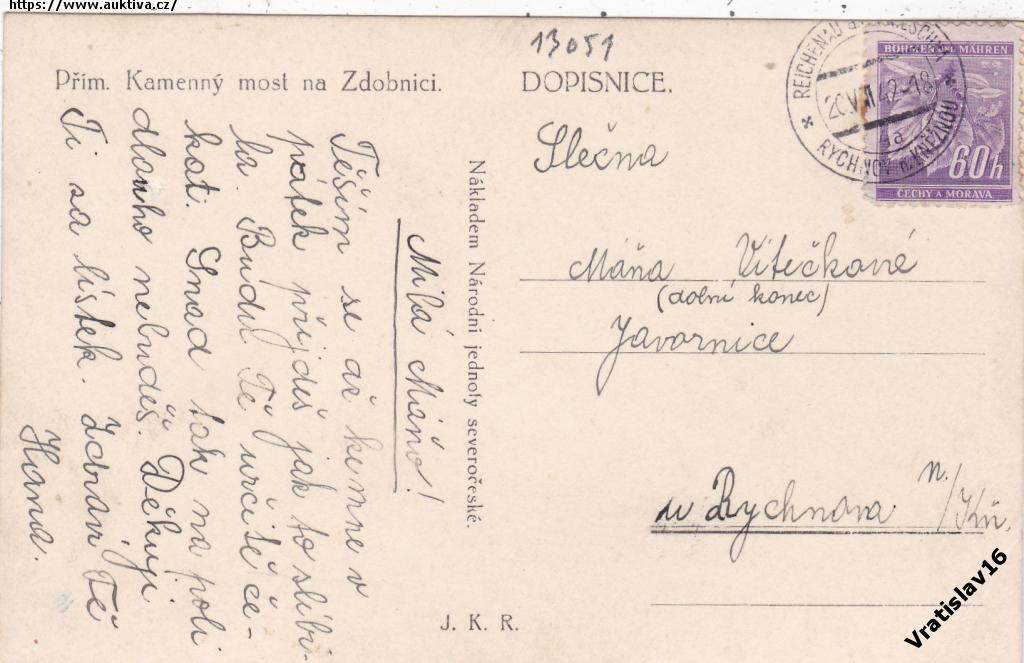 https://www.auktiva.cz/
13051
Přím. Kamenný most na Zdobnici.
DOPISNICE.
REICHENAU
RYCHNOV N. KNĚŽNOU
20.VII.42-18
a
BÖHMEN UND MÄHREN
60h
ČECHY A MORAVA
Milá Máňo!
Těším se až kemne v
pátek přijdeš jak to slíbi-
la. Budu Tě určitě če-
kat. Snad tak na poli
dlouho nebudeš. Děkuji
Ti za lístek. Zdraví Tě
Hana.
Nákladem Národní jednoty severočeské.
J. K. R.
Slečna
Máňa Vítečkové
(dolní konec)
Javornice
u Rychnova n./Kn.
Vratislav16